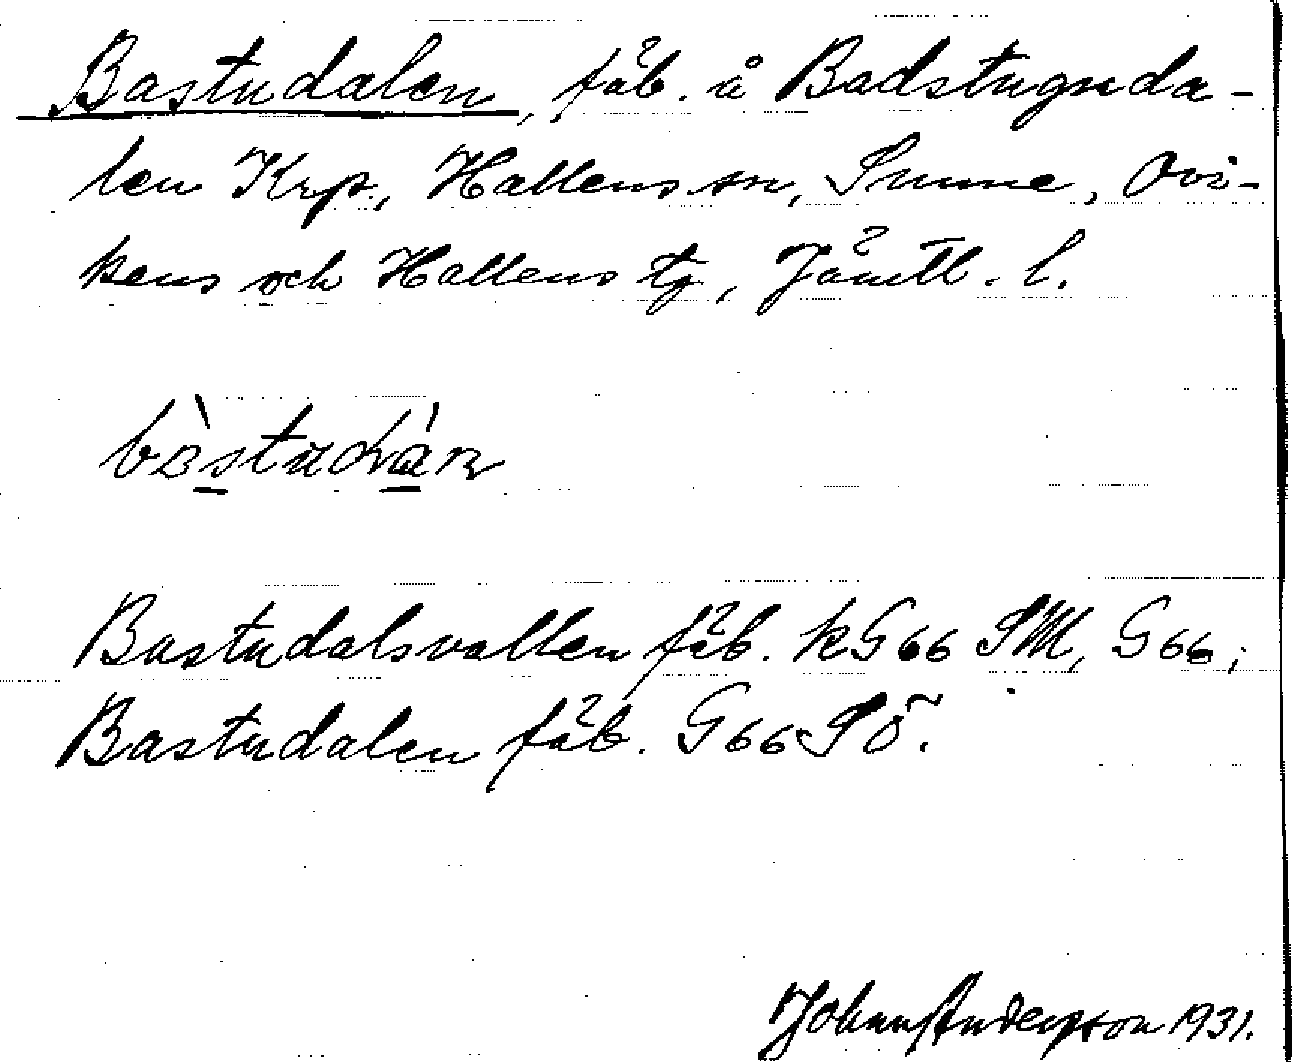 Bastudalen, fäb. å Badstugnda-
len Krp., Hallens sn, Sunne, Ovi-
kens och Hallens tg, Jämtl. l.
Bastudalsvallen fäb. kG66 SM, G66;
Bastudalen fäb. G66 SÖ.
Johan Anderson 1931.